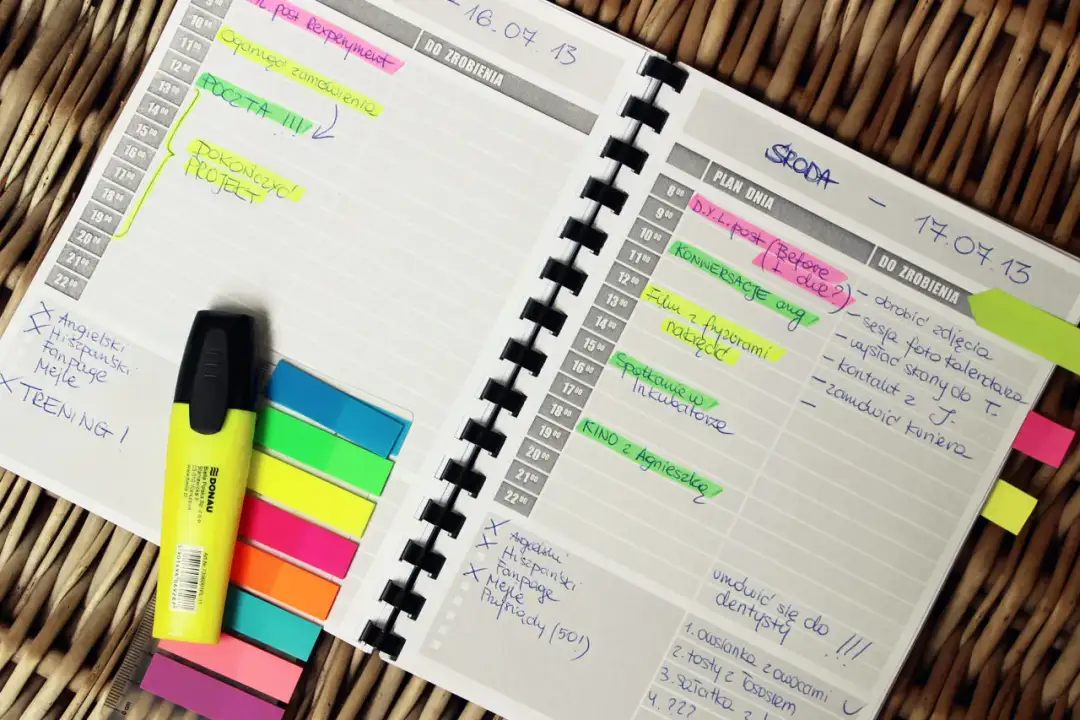 - 16.07.13
DO ZROBIENIA
post
Ogarnąć zamówienia
POCZTA !!!
DOKOŃCZYĆ
PROJEKT
10 00
11 00
12 00
13 00
14 00
15 00
16 00
17 00
18 00
19 00
20 00
21 00
22 00
X Angielski
X Hiszpański
Fanpage
Mejle
X TRENING!
DONAU
ŚRODA - 17.07.13
PLAN DNIA
DO ZROBIENIA
8 00
9 00
10 00
11 00
12 00
13 00
14 00
15 00
16 00
17 00
18 00
19 00
20 00
21 00
22 00
D.Y.L. post (Before
I die?)
KONWERSACJE ang
Film z fryzurami
nakręcić
Spotkanie w
Inkubatorze
KINO z Agnieszką
- obrobić zdjęcia
- sesja foto kalendarza
- wysłać skany do T.
- kontakt z J.
- zamówić kuriera
-
X Angielski
X Hiszpański
Fanpage
X Mejle
Przysiady (50!)
umówić się do
dentysty !!!
1. owsianka z owocami
2. tosty z łososiem
3. sałatka z
4. ???